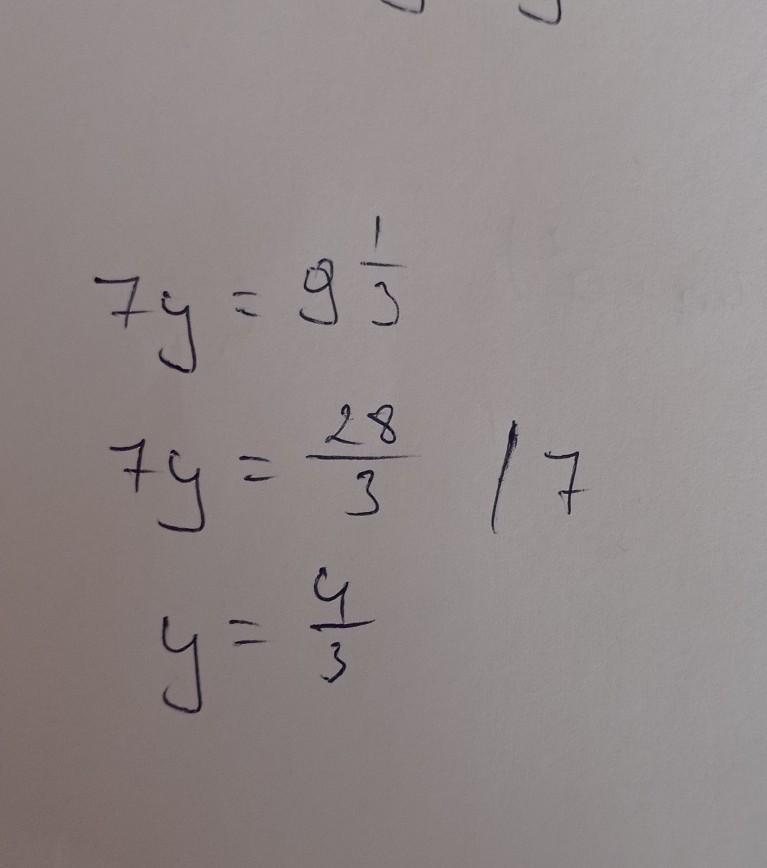 7y = 9 1/3
7y = 28/3 /7
y = 4/3